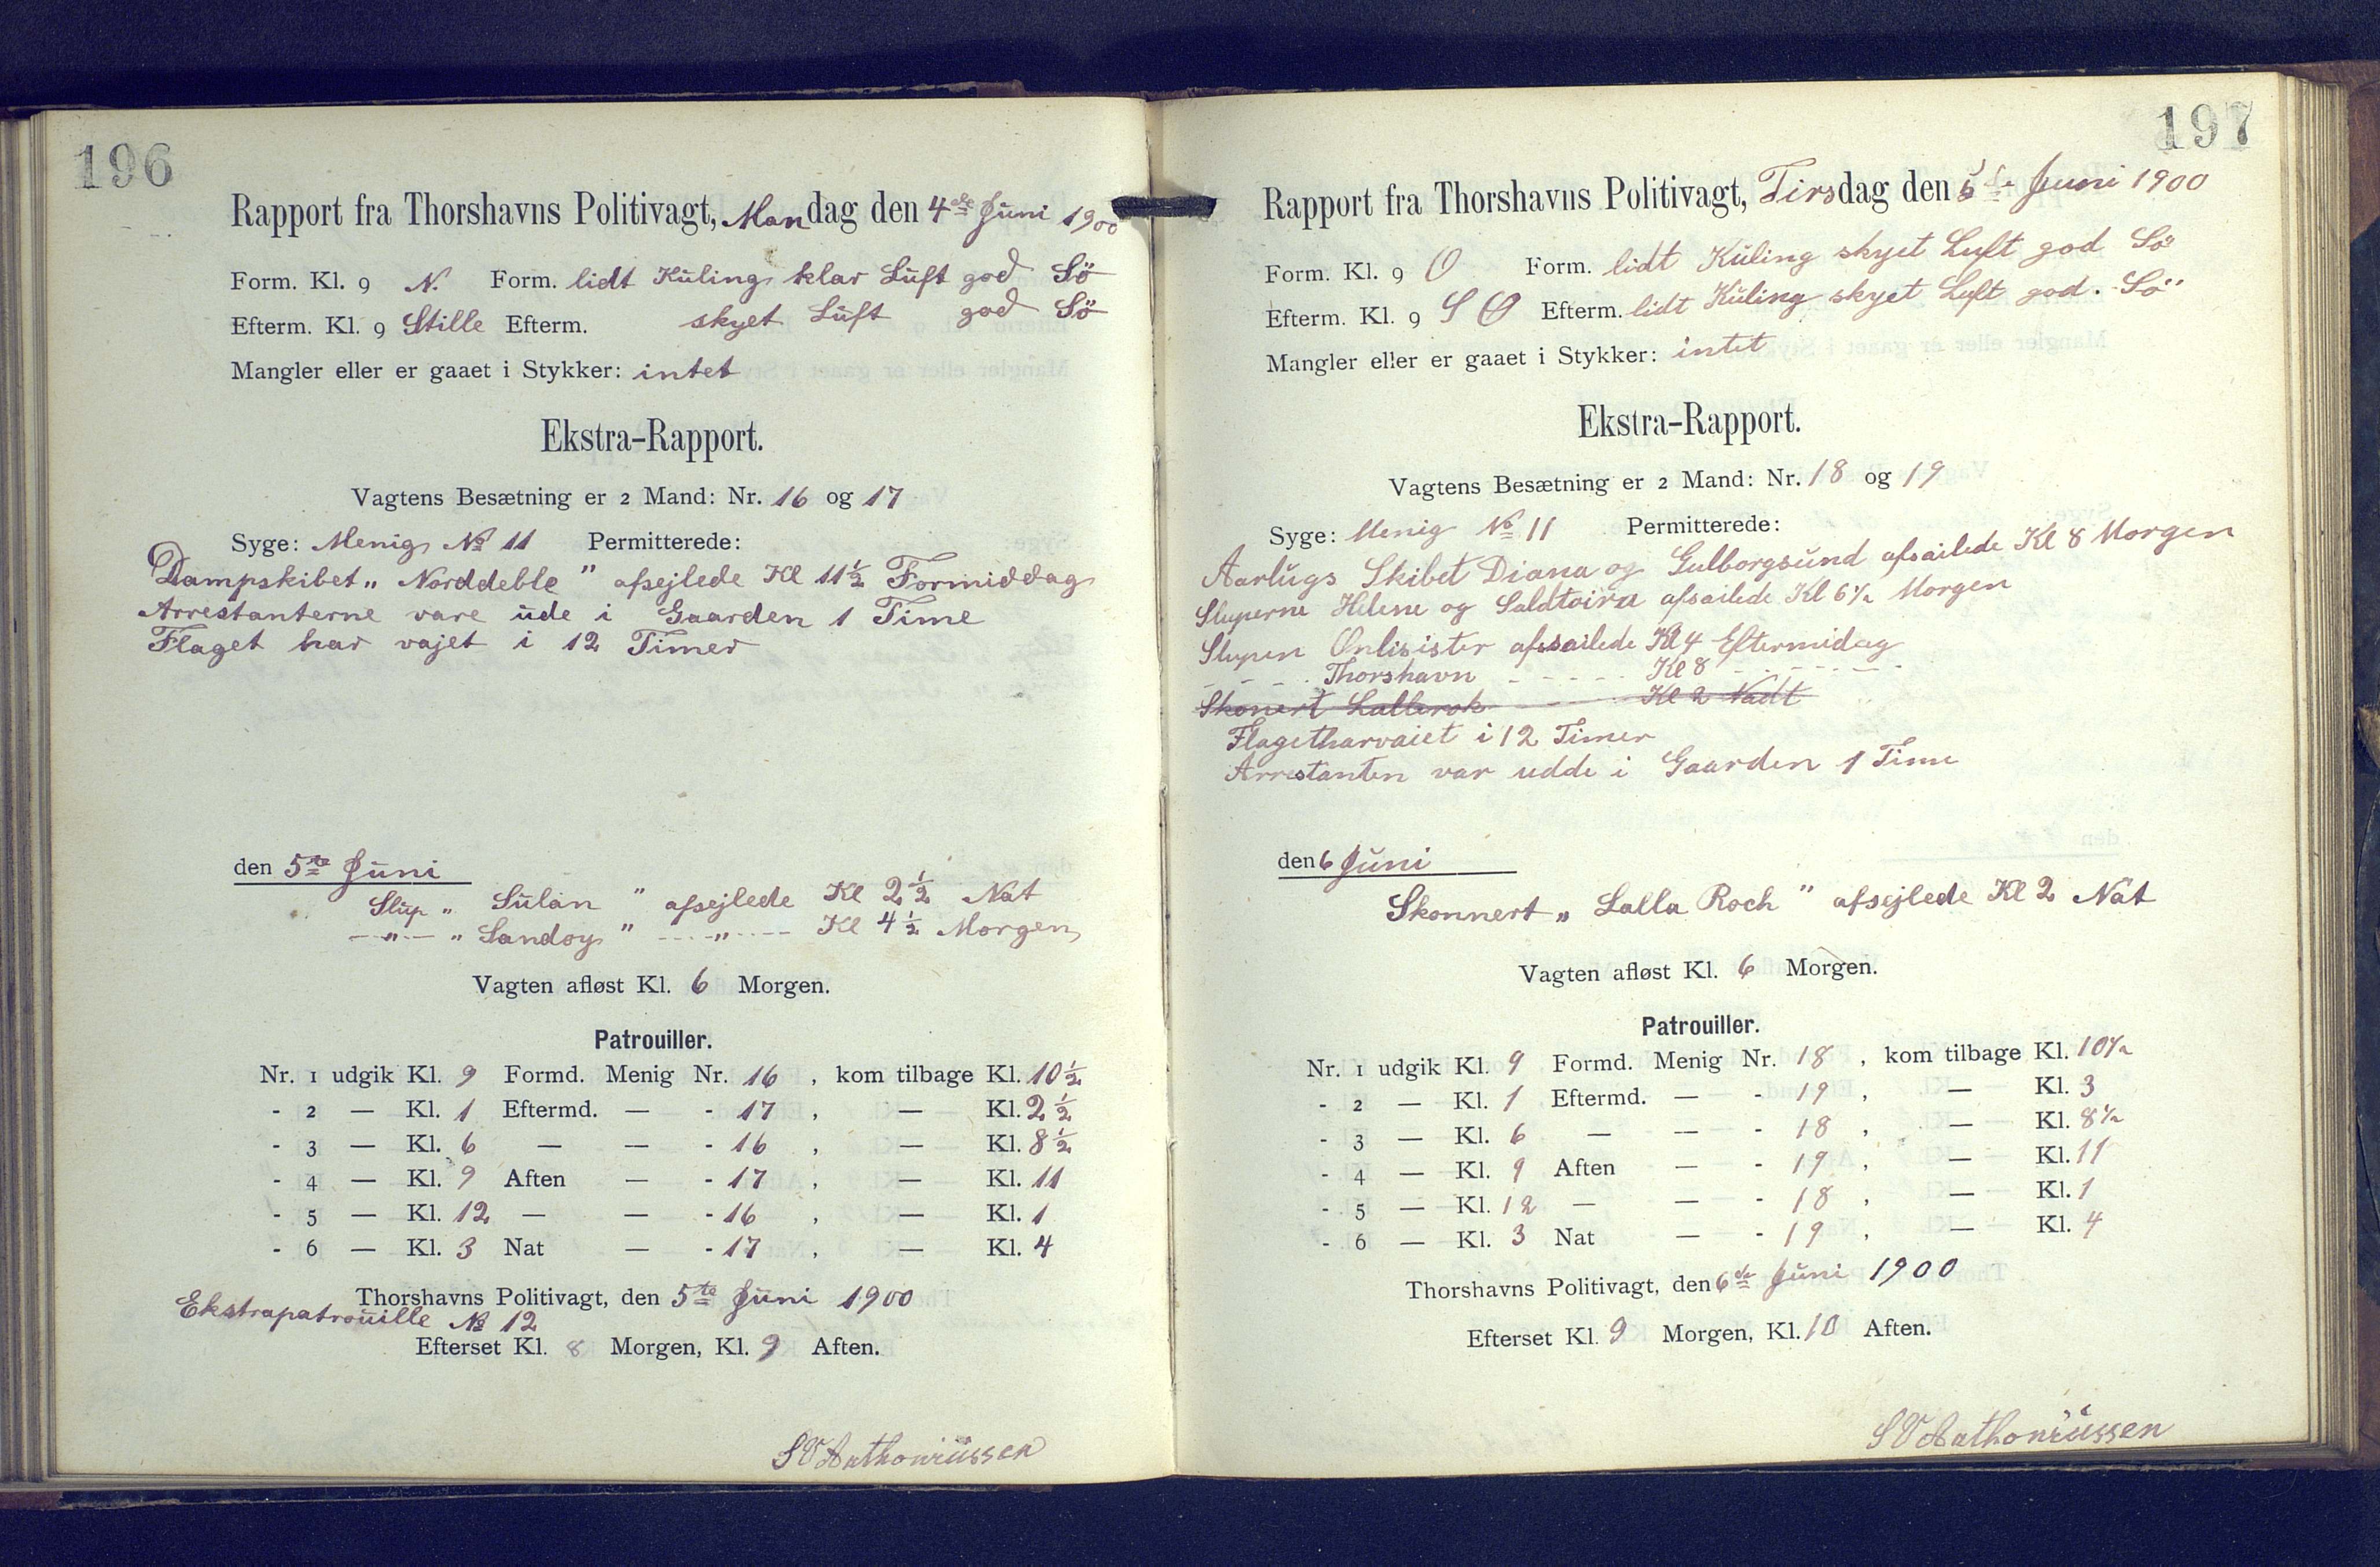 196
Rapport fra Thorshavns Politivagt, Mandag den 4de Juni 1900
Form. Kl. 9 N. Form. lidt Kuling klar Luft god Sö
Efterm. Kl. 9 Stille Efterm. skyet Luft god Sö
Mangler eller er gaaet i Stykker: intet
Ekstra-Rapport.
Vagtens Besætning er 2 Mand: Nr. 16 og 17
Syge: Menig No 11 Permitterede:
Dampskibet „ Norddeble " afsejlede Kl 11½ Formiddag
Arrestanterne vare ude i Gaarden 1 Time
Flaget har vajet i 12 Timer
den 5te Juni
Slup „ Sulan " afsejlede Kl 2½ Nat
—„— „ Sandoy " —„— Kl 4½ Morgen
Vagten afløst Kl. 6 Morgen.
Patrouiller.
Nr. 1 udgik Kl. 9 Formd. Menig Nr. 16 , kom tilbage Kl. 10½
- 2 — Kl. 1 Eftermd. — - 17 , — Kl. 2½
- 3 — Kl. 6 — — - 16 , — Kl. 8½
- 4 — Kl. 9 Aften — - 17 , — Kl. 11
- 5 — Kl. 12 — — - 16 , — Kl. 1
- 6 — Kl. 3 Nat — - 17 , — Kl. 4
Thorshavns Politivagt, den 5te Juni 1900
Ekstrapatrouille No 12
Efterset Kl. 8 Morgen, Kl. 9 Aften.
S V Anthoniussen
197
Rapport fra Thorshavns Politivagt, Tirsdag den 5te Juni 1900
Form. Kl. 9 O Form. lidt Kuling skyet Luft god Sö
Efterm. Kl. 9 S O Efterm. lidt Kuling skyet Luft god. Sö
Mangler eller er gaaet i Stykker: intet
Ekstra-Rapport.
Vagtens Besætning er 2 Mand: Nr. 18 og 19
Syge: Menig No 11 Permitterede:
Aarlugs Skibet Diana og Gulborgsund afsailede Kl 8 Morgen
Sluperne Helene og afsailede Kl 6½ Morgen
Slupen afssailede Kl 4 Eftermidag
- - - - Thorshavn - - - - - Kl 8 - - - - - -
Skonert Lallerok - - - - Kl 2 Nadt
Flagetharvaiet i 12 Timer
Arrestanten var udde i Gaarden 1 Time
den 6 Juni
Skonnert „ Lalla Roch " afsejlede Kl 2 Nat
Vagten afløst Kl. 6 Morgen.
Patrouiller.
Nr. 1 udgik Kl. 9 Formd. Menig Nr. 18 , kom tilbage Kl. 10½
- 2 — Kl. 1 Eftermd. — - 19 , — Kl. 3
- 3 — Kl. 6 — — - 18 , — Kl. 8½
- 4 — Kl. 9 Aften — - 19 , — Kl. 11
- 5 — Kl. 12 — — - 18 , — Kl. 1
- 6 — Kl. 3 Nat — - 19 , — Kl. 4
Thorshavns Politivagt, den 6de Juni 1900
Efterset Kl. 9 Morgen, Kl. 10 Aften.
S V Anthoniussen